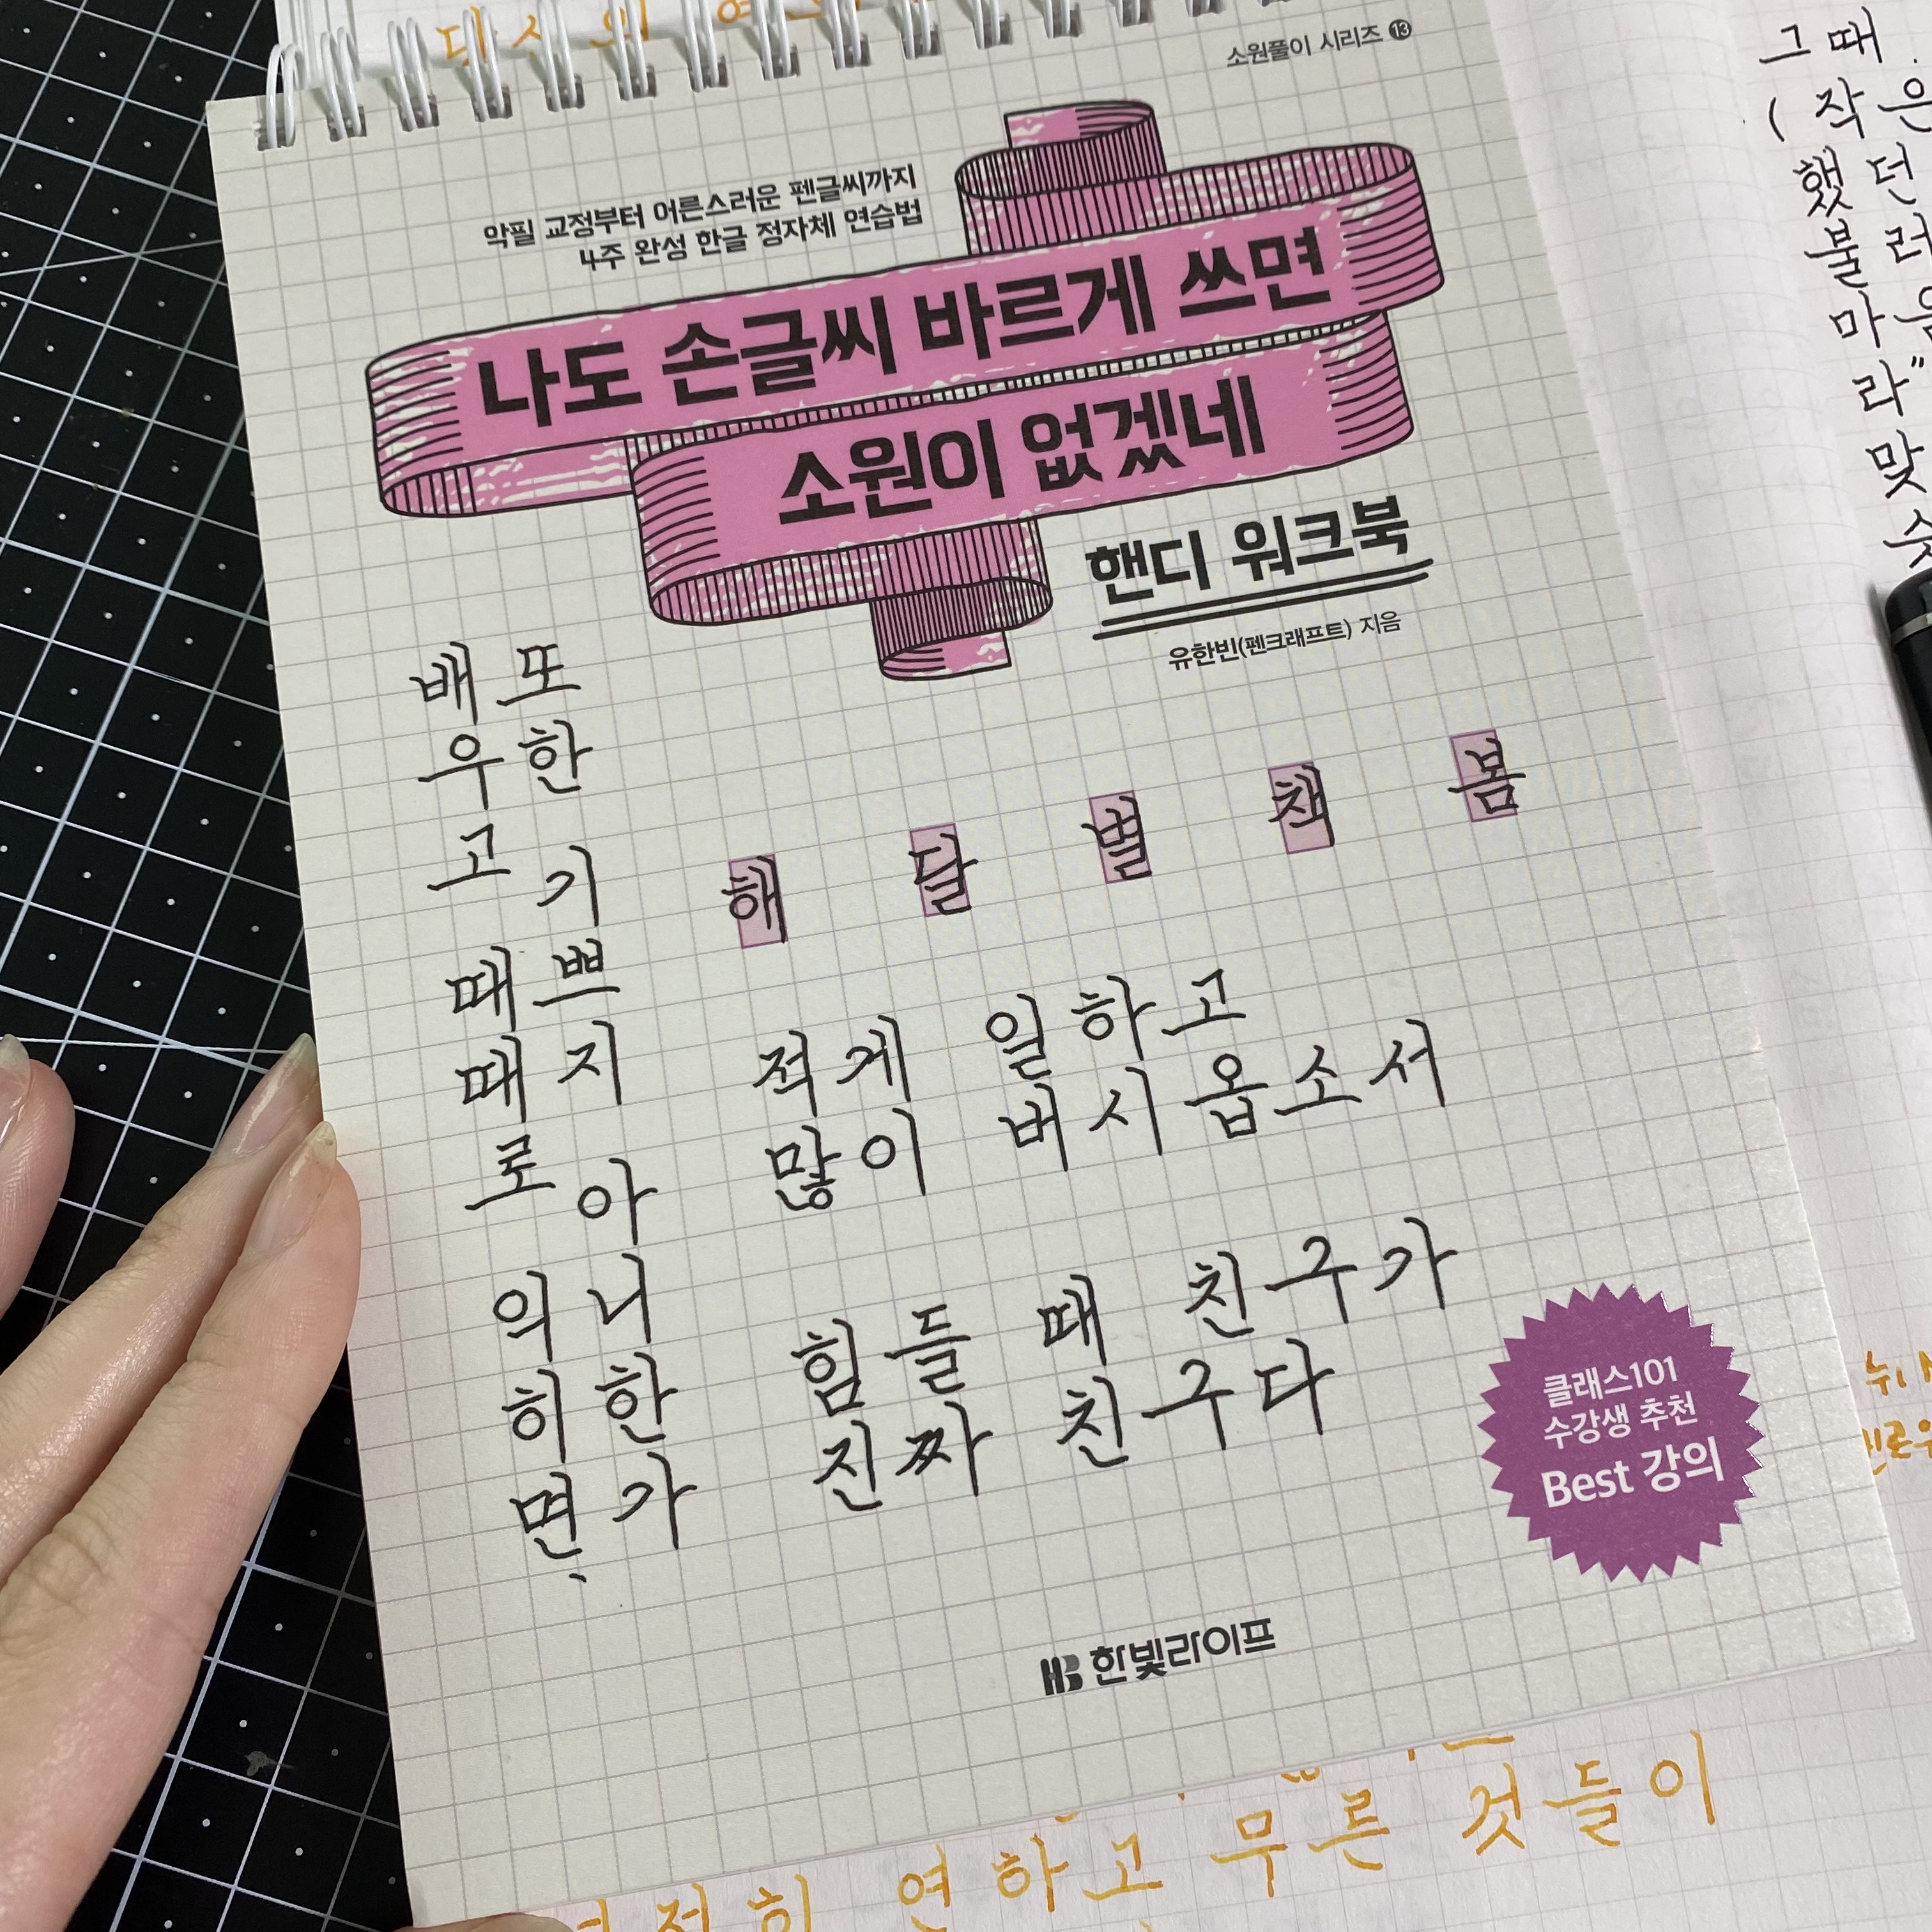 소원풀이 시리즈 13
악필 교정부터 어른스러운 펜글씨까지
4주 완성 한글 정자체 연습법
나도 손글씨 바르게 쓰면
소원이 없겠네
핸디 워크북
유한빈(펜크래프트) 지음
배우고 때때로 익히면,
또한 기쁘지 아니한가
해 달 별 책 봄
적게 일하고
많이 버시옵소서
힘들 때 친구가
진짜 친구다
클래스101
수강생 추천
Best 강의
HB 한빛라이프
그때
(작은
했던
불러
마음
라"
맞
연하고 무른 것들이